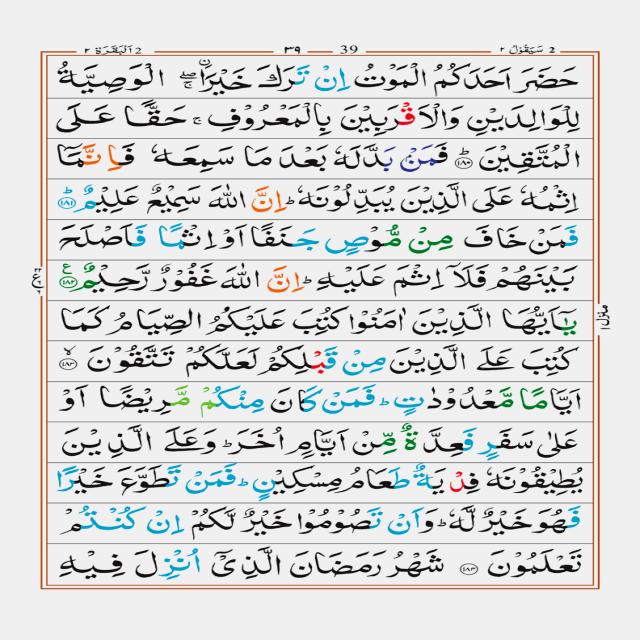 2 سَيَقُوْلُ ٢ 39 ٣٩ 2 اَلْبَقَرَة ٢
حَضَرَ اَحَدَكُمُ الْمَوْتُ اِنْ تَرَكَ خَيْرَاۖۚ ۨ الْوَصِيَّةُ
لِلْوَالِدَيْنِ وَالْاَقْرَبِيْنَ بِالْمَعْرُوْفِ ۚ حَقًّا عَلَى
الْمُتَّقِيْنَ ؕ ﴿۱۸۰﴾ فَمَنْ بَدَّلَهٗ بَعْدَ مَا سَمِعَهٗ فَاِنَّمَاۤ
اِثْمُهٗ عَلَى الَّذِيْنَ يُبَدِّلُوْنَهٗ ؕ اِنَّ اللّٰهَ سَمِيْعٌ عَلِيْمٌ ؕ ﴿۱۸۱﴾
فَمَنْ خَافَ مِنْ مُّوْصٍ جَنَفًا اَوْ اِثْمًا فَاَصْلَحَ
بَيْنَهُمْ فَلَاۤ اِثْمَ عَلَيْهِ ؕ اِنَّ اللّٰهَ غَفُوْرٌ رَّحِيْمٌ ﴿۱۸۲﴾ ع
يٰۤاَيُّهَا الَّذِيْنَ اٰمَنُوْا كُتِبَ عَلَيْكُمُ الصِّيَامُ كَمَا
كُتِبَ عَلَى الَّذِيْنَ مِنْ قَبْلِكُمْ لَعَلَّكُمْ تَتَّقُوْنَ ۙ ﴿۱۸۳﴾
اَيَّامًا مَّعْدُوْدٰتٍ ؕ فَمَنْ كَانَ مِنْكُمْ مَّرِيْضًا اَوْ
عَلٰى سَفَرٍ فَعِدَّةٌ مِّنْ اَيَّامٍ اُخَرَ ؕ وَعَلَى الَّذِيْنَ
يُطِيْقُوْنَهٗ فِدْيَةٌ طَعَامُ مِسْكِيْنٍ ؕ فَمَنْ تَطَوَّعَ خَيْرًا
فَهُوَ خَيْرٌ لَّهٗ ؕ وَاَنْ تَصُوْمُوْا خَيْرٌ لَّكُمْ اِنْ كُنْتُمْ
تَعْلَمُوْنَ ﴿۱۸۴﴾ شَهْرُ رَمَضَانَ الَّذِيْۤ اُنْزِلَ فِيْهِ
منزل ۱